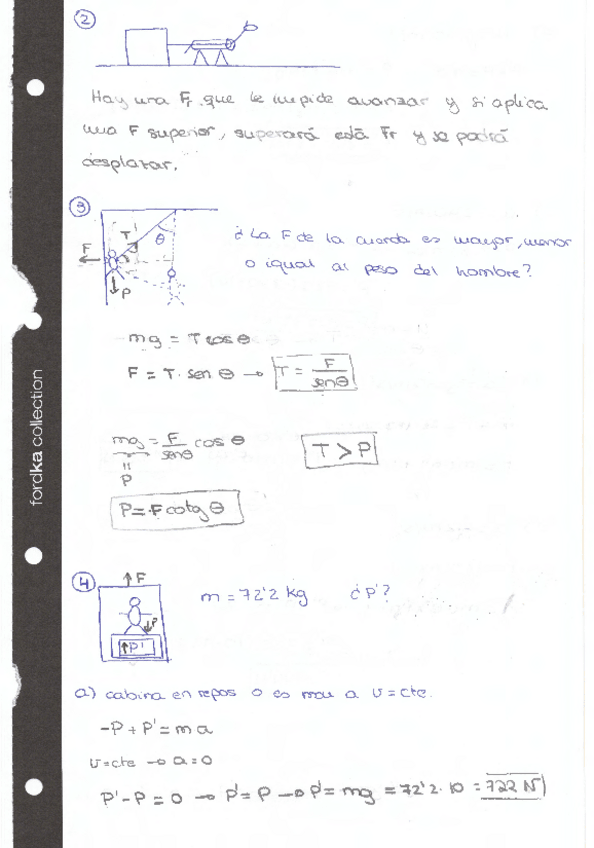 2
Hay una Fr que le impide avanzar y si aplica
una F superior, superará está Fr y se podrá
desplazar.
3
T
θ
F
P
¿La F de la cuerda es mayor, menor
o igual al peso del hombre?
mg = T cos θ
F = T · sen θ → T = F / sen θ
mg = F / senθ cos θ
T > P
=
P
P = F cotg θ
4
F
m = 72'2 kg ¿P'?
P
P'
a) cabina en repos o es mou a v = cte.
-P + P' = m a
v = cte → a = 0
P' - P = 0 → P' = P → P' = mg = 72'2 · 10 = 722 N
fordka collection